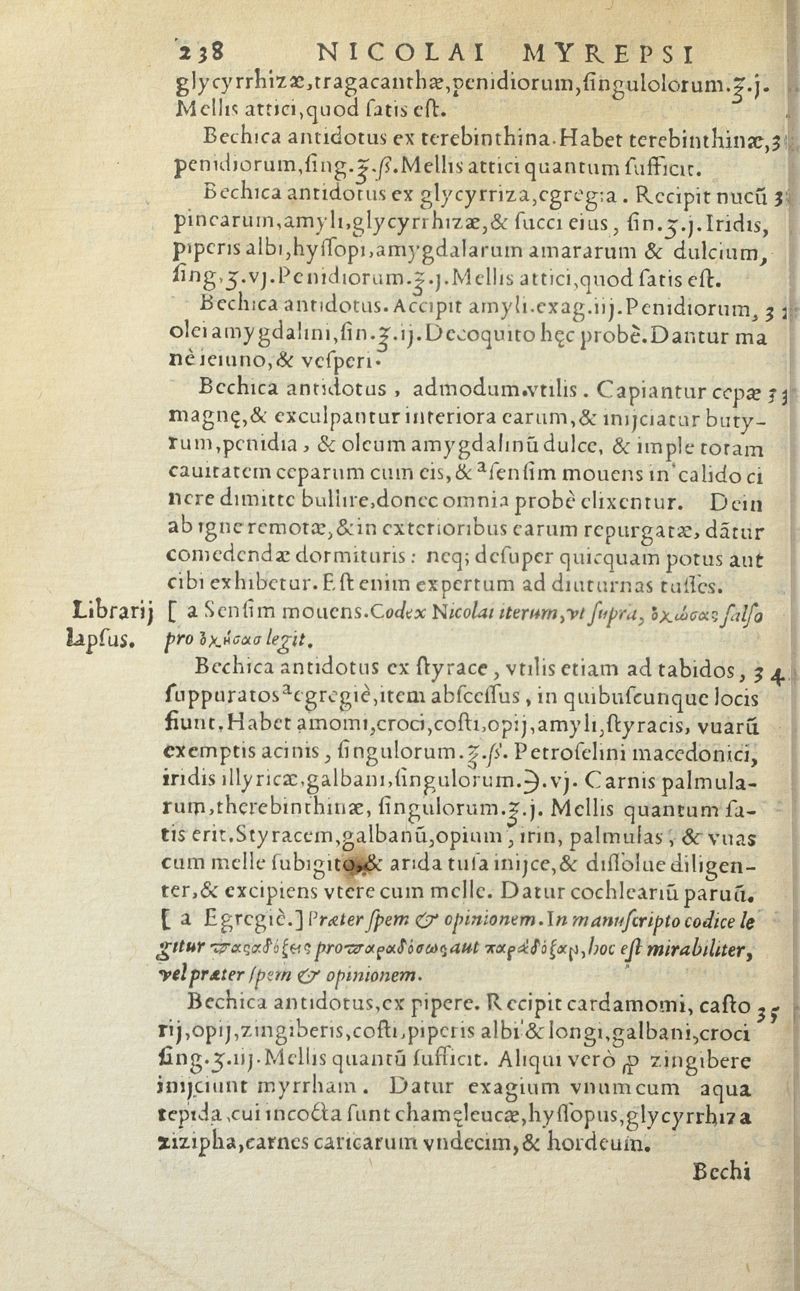 238 NICOLAI MYREPSI
glycyrrhizæ,tragacanthæ,penidiorum,ſingulolorum.℥.j.
Mellis attici,quod ſatis eſt.
Bechica antidotus ex terebinthina.Habet terebinthinæ,3
penidiorum,ſing.℥.ß.Mellis attici quantum ſufficit.
Bechica antidotus ex glycyrriza,egregia. Recipit nucū 3
pinearum,amyli,glycyrrhizæ,& ſucci eius, ſin.ʒ.j.Iridis,
piperis albi,hyſſopi,amygdalarum amararum & dulcium,
ſing,ʒ.vj.Penidiorum.℥.j.Mellis attici,quod ſatis eſt.
Bechica antidotus. Accipit amyli.exag.iij.Penidiorum, 3
olei amygdalini,ſin.℥.ij.Decoquito hęc probè.Dantur ma
nè ieiuno,& veſperi.
Bechica antidotus, admodum.vtilis. Capiantur cepæ 33
magnę,& exculpantur interiora earum,& inijciatur buty-
rum,penidia, & oleum amygdalinū dulce, & imple totam
cauitatem ceparum cum eis,& ᵃſenſim mouens in calido ci
nere dimitte bullire,donec omnia probè elixentur. Dein
ab igne remotæ,& in exterioribus earum repurgatæ, dātur
comedendæ dormituris: neq; deſuper quicquam potus aut
cibi exhibetur.Eſt enim expertum ad diuturnas tuſſes.
Librarij [ a Senſim mouens.Codex Nicolai iterum,vt ſupra, ὀχλώσας falſo
lapſus. pro legit.
Bechica antidotus ex ſtyrace, vtilis etiam ad tabidos, 34
ſuppuratosᵃegregiè,item abſceſſus, in quibuſcunque locis
fiunt.Habet amomi,croci,coſti,opij,amyli,ſtyracis, vuarū
exemptis acinis, ſingulorum.℥.ß. Petroſelini macedonici,
iridis illyricæ,galbani,ſingulorum.℈.vj. Carnis palmula-
rum,therebinthinæ, ſingulorum.℥.j. Mellis quantum ſa-
tis erit.Styracem,galbanū,opium, irin, palmulas, & vuas
cum melle ſubigito,& arida tuſa inijce,& diſſolue diligen-
ter,& excipiens vtere cum melle. Datur cochleariū paruū.
[ a Egregiè.] Præter ſpem & opinionem.In manuſcripto codice le
gitur pro aut hoc eſt mirabiliter,
vel præter ſpem & opinionem.
Bechica antidotus,ex pipere. Recipit cardamomi, caſto 35
rij,opij,zingiberis,coſti,piperis albi & longi,galbani,croci
ſing.ʒ.iij.Mellis quantū ſufficit. Aliqui verò ꝓ zingibere
inijciunt myrrham. Datur exagium vnum cum aqua
tepida,cui incocta ſunt chamęleucæ,hyſſopus,glycyrrhiza
zizipha,carnes caricarum vndecim,& hordeum.
Bechi